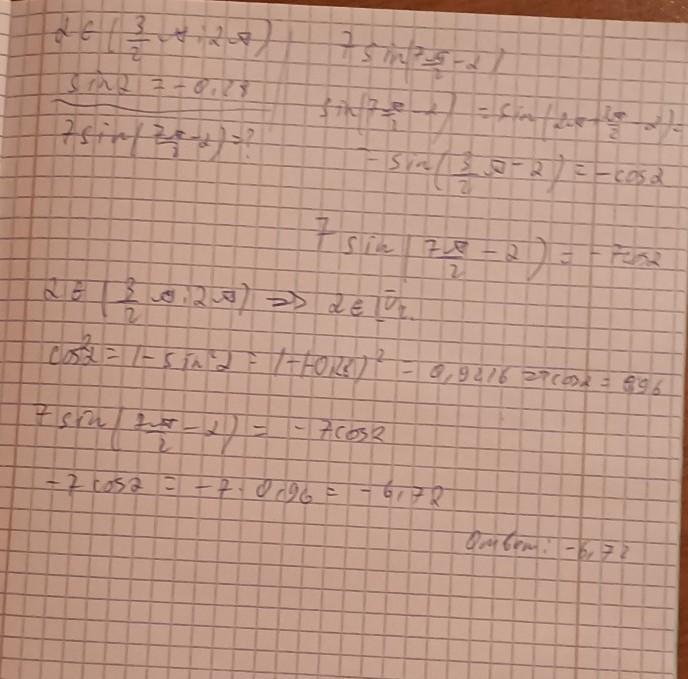 α ∈ (3/2 π; 2π)
sin α = -0,28
7 sin(7π/2 - α) = ?
7 sin(7π/2 - α)
sin(7π/2 - α) = sin(2π + 3π/2 - α) =
= sin(3/2 π - α) = -cos α
7 sin(7π/2 - α) = -7cos α
α ∈ (3/2 π; 2π) => α ∈ IV
cos²α = 1 - sin²α = 1 - (-0,28)² = 0,9216 => cos α = 0,96
7 sin(7π/2 - α) = -7cos α
-7 cos α = -7 · 0,96 = -6,72
Ответ: -6,72